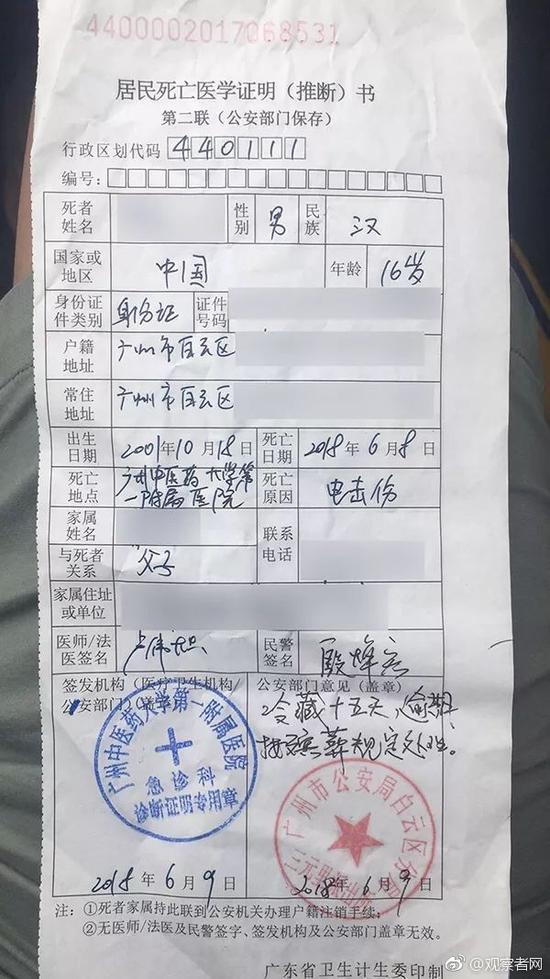 4400002017068531
居民死亡医学证明（推断）书
第二联（公安部门保存）
行政区划代码 440111
编号：
死者姓名 性别 男 民族 汉
国家或地区 中国 年龄 16岁
身份证件类别 身份证 证件号码
户籍地址 广州市白云区
常住地址 广州市白云区
出生日期 2001年10月18日 死亡日期 2018年6月8日
死亡地点 广州中医药大学第一附属医院 死亡原因 电击伤
家属姓名 联系电话
与死者关系 父子
家属住址或单位
医师/法医签名 民警签名
签发机构（医疗卫生机构/公安部门）（盖章） 公安部门意见（盖章）
冷藏十五天，逾期
按殡葬规定处理。
广州中医药大学第一附属医院
急诊科
诊断证明专用章
广州市公安局白云区分局
2018年6月9日 2018年6月9日
注：①死者家属持此联到公安机关办理户籍注销手续；
②无医师/法医及民警签字、签发机构及公安部门盖章无效。
广东省卫生计生委印制
@观察者网